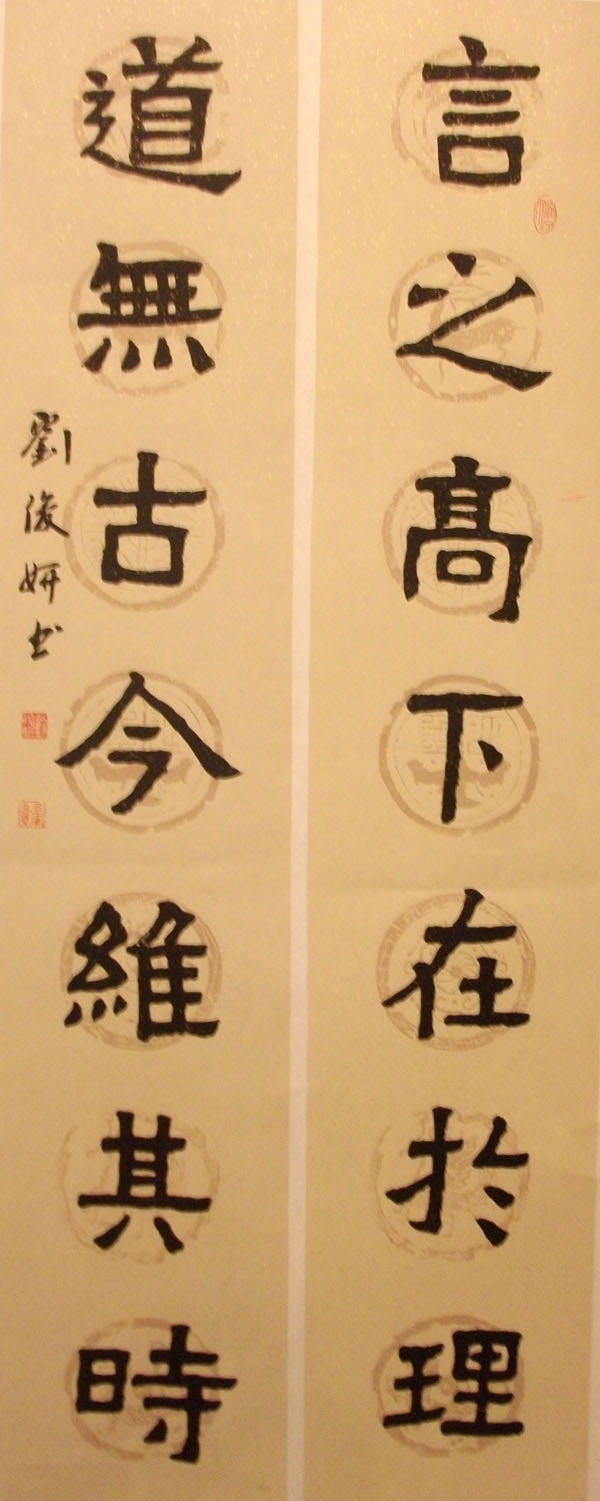 言之髙下在於理
道無古今維其時
劉俊妍书